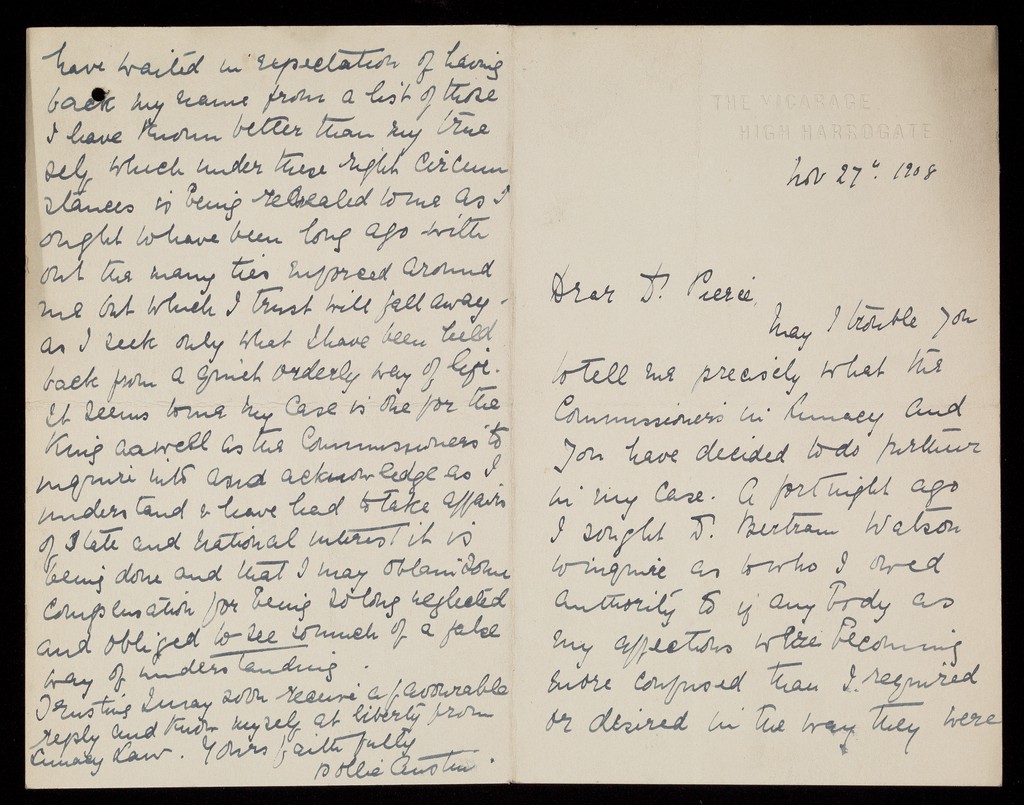 THE VICARAGE,
HIGH HARROGATE
Nov 27th. 1908
Dear Dr. Pierce,
May I trouble you
to tell me precisely what the
Commissioners in Lunacy and
you have decided to do further
in my case. A fortnight ago
I sought Dr. Bertram Watson
to inquire as to who I owed
authority to if any body as
my affections were becoming
more confused than I required
or desired in the way they were
have waited in expectation of having
back my name from a list of those
I have known better than my true
self which under these right circum
stances is being revealed to me as I
ought to have been long ago with
out the many ties enforced around
me but which I trust will fall away -
as I seek only what I have been held
back from a quiet orderly way of life.
It seems to me my case is one for the
King as well as the Commissioners to
inquire into and acknowledge as I
understand & have had to take affairs
of State and national interest it is
being done and that I may obtain some
compensation for being so long neglected
and obliged to see so much of a false
way of understanding.
Trusting I may soon receive a favourable
reply and know myself at liberty from
Lunacy Law. Yours faithfully
Dollie Austin.